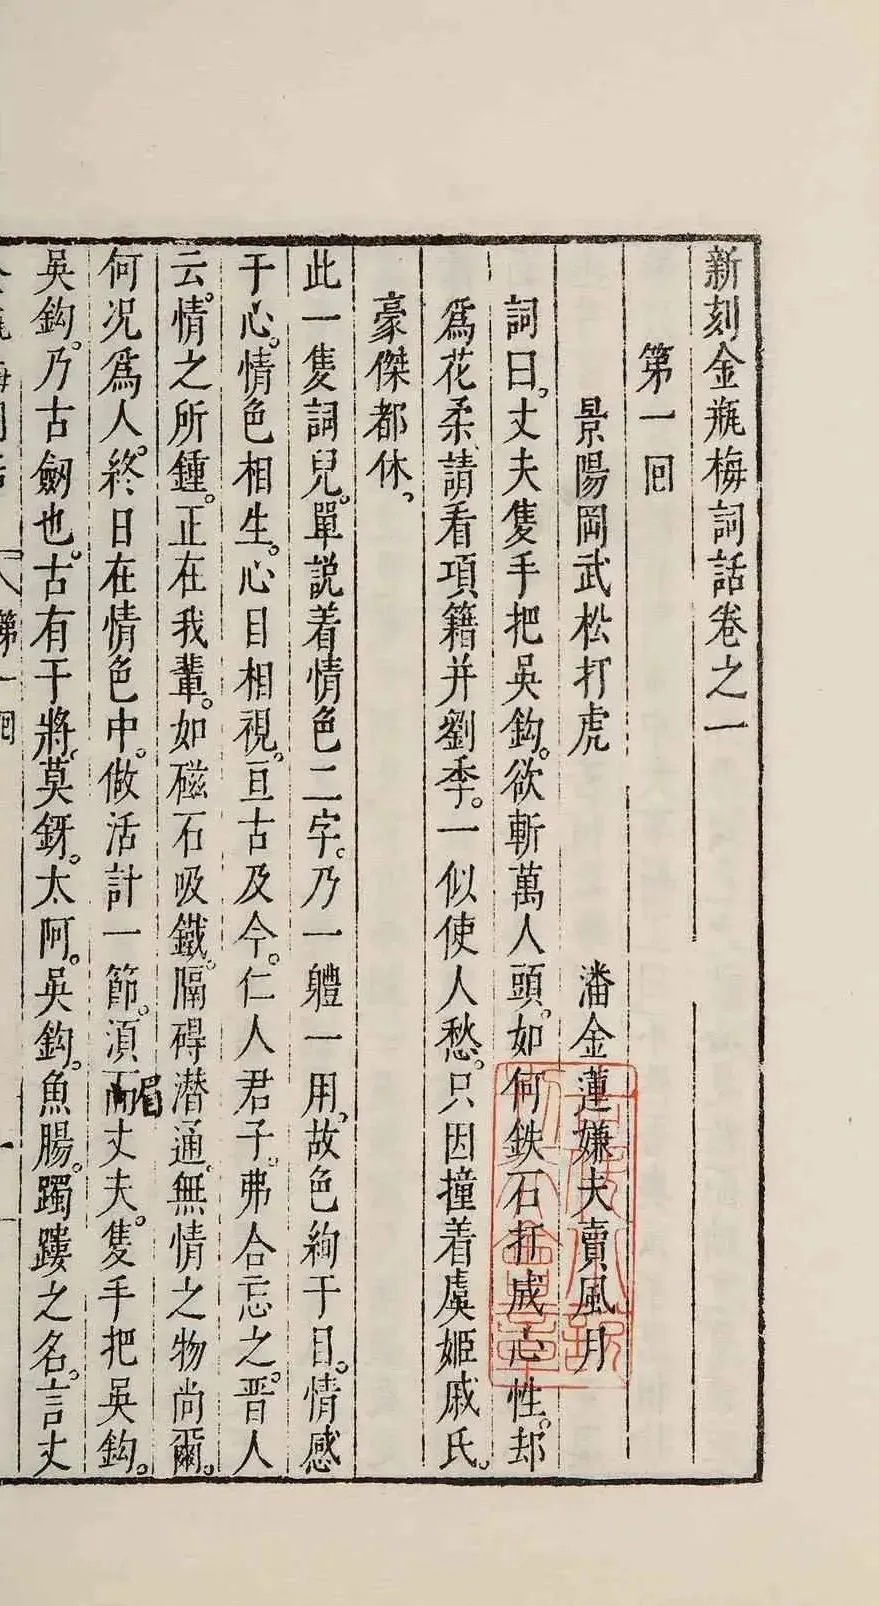 新刻金瓶梅詞話卷之一
第一回
景陽岡武松打虎　潘金蓮嫌夫賣風月
詞曰。丈夫隻手把吳鈎。欲斬萬人頭。如何鉄石打成心性。却
爲花柔。請看項籍并劉季。一似使人愁。只因撞着虞姬戚氏。
豪傑都休。
此一隻詞兒。單説着情色二字。乃一體一用。故色絢于目。情感
于心。情色相生。心目相視。亘古及今。仁人君子。弗合忘之。晋人
云。情之所鍾。正在我輩。如磁石吸鐵。隔碍潜通。無情之物尚爾。
何况爲人。終日在情色中。做活計一節。須眉丈夫。隻手把吳鈎。
吳鈎。乃古劒也。古有干將。莫鋣。太阿。吳鈎。魚腸。躅䠱之名。言丈
第一回